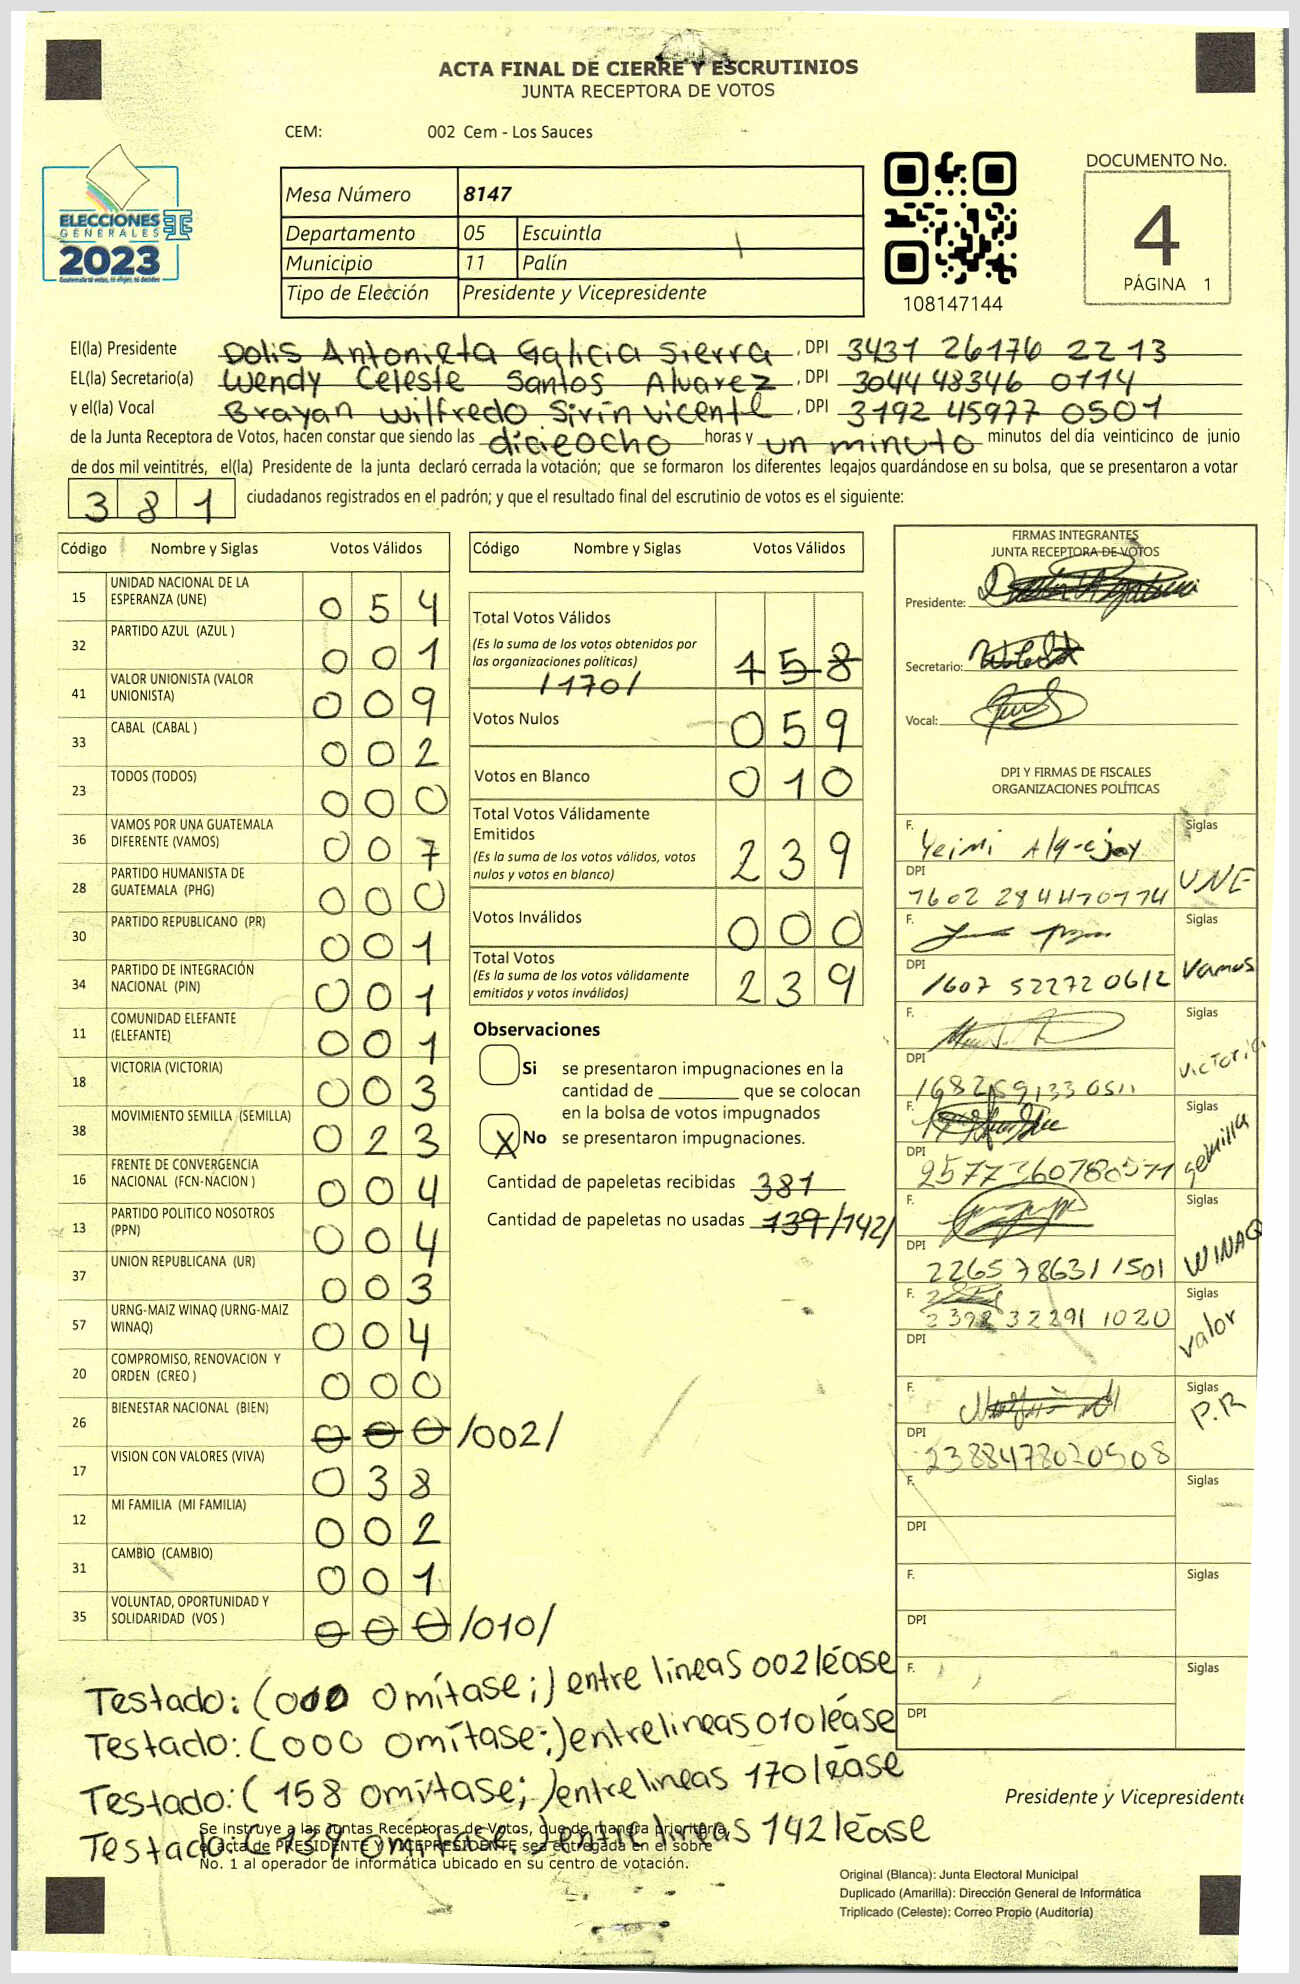 ACTA FINAL DE CIERRE Y ESCRUTINIOS
JUNTA RECEPTORA DE VOTOS
CEM: 002 Cem - Los Sauces
ELECCIONES
GENERALES
2023
Mesa Número 8147
Departamento 05 Escuintla
Municipio 11 Palín
Tipo de Elección Presidente y Vicepresidente
108147144
DOCUMENTO No.
4
PÁGINA 1
El(la) Presidente Dolis Antonieta Galicia Sierra, DPI 3431 26176 2213
EL(la) Secretario(a) Wendy Celeste Santos Alvarez, DPI 3044 48346 0114
y el(la) Vocal Brayan Wilfredo Sirín Vicente, DPI 3192 45977 0501
de la Junta Receptora de Votos, hacen constar que siendo las dicieocho horas y un minuto minutos del día veinticinco de junio
de dos mil veintitrés, el(la) Presidente de la junta declaró cerrada la votación; que se formaron los diferentes legajos quardándose en su bolsa, que se presentaron a votar
381 ciudadanos registrados en el padrón; y que el resultado final del escrutinio de votos es el siguiente:
Código Nombre y Siglas Votos Válidos
15 UNIDAD NACIONAL DE LA ESPERANZA (UNE) 054
32 PARTIDO AZUL (AZUL ) 001
41 VALOR UNIONISTA (VALOR UNIONISTA) 009
33 CABAL (CABAL ) 002
23 TODOS (TODOS) 000
36 VAMOS POR UNA GUATEMALA DIFERENTE (VAMOS) 007
28 PARTIDO HUMANISTA DE GUATEMALA (PHG) 000
30 PARTIDO REPUBLICANO (PR) 001
34 PARTIDO DE INTEGRACIÓN NACIONAL (PIN) 001
11 COMUNIDAD ELEFANTE (ELEFANTE) 001
18 VICTORIA (VICTORIA) 003
38 MOVIMIENTO SEMILLA (SEMILLA) 023
16 FRENTE DE CONVERGENCIA NACIONAL (FCN-NACION ) 004
13 PARTIDO POLITICO NOSOTROS (PPN) 004
37 UNION REPUBLICANA (UR) 003
57 URNG-MAIZ WINAQ (URNG-MAIZ WINAQ) 004
20 COMPROMISO, RENOVACION Y ORDEN (CREO ) 000
26 BIENESTAR NACIONAL (BIEN) 000 /002/
17 VISION CON VALORES (VIVA) 038
12 MI FAMILIA (MI FAMILIA) 002
31 CAMBIO (CAMBIO) 001
35 VOLUNTAD, OPORTUNIDAD Y SOLIDARIDAD (VOS ) 000 /010/
Código Nombre y Siglas Votos Válidos
Total Votos Válidos
(Es la suma de los votos obtenidos por
las organizaciones políticas) 158
/170/
Votos Nulos 059
Votos en Blanco 010
Total Votos Válidamente
Emitidos 239
(Es la suma de los votos válidos, votos
nulos y votos en blanco)
Votos Inválidos 000
Total Votos 239
(Es la suma de los votos válidamente
emitidos y votos inválidos)
Observaciones
Si se presentaron impugnaciones en la
cantidad de ________ que se colocan
en la bolsa de votos impugnados
X No se presentaron impugnaciones.
Cantidad de papeletas recibidas 381
Cantidad de papeletas no usadas 139 /142/
FIRMAS INTEGRANTES
JUNTA RECEPTORA DE VOTOS
Presidente:
Secretario:
Vocal:
DPI Y FIRMAS DE FISCALES
ORGANIZACIONES POLÍTICAS
F. Yeimi Siglas
DPI 1602 28447 0774 UNE
F. Siglas
DPI 1607 52272 0612 Vamos
F. Siglas
DPI Victoria
F. Siglas
DPI 2577360780571 Semilla
F. Siglas
DPI 2265786311501 WINAQ
F. Siglas
2392 32291 1020 valor
DPI
F. Siglas
DPI 2388478020508 P.R
F. Siglas
DPI
F. Siglas
DPI
F. Siglas
DPI
Testado: (000 Omítase;) entre lineas 002 léase
Testado: (000 Omítase;) entre lineas 010 léase
Testado: (158 omítase;) entre lineas 170 léase
Testado: (139 omítase;) entre lineas 142 léase
Se instruye a las Juntas Receptoras de Votos, que de manera prioritaria,
el acta de PRESIDENTE Y VICEPRESIDENTE sea entregada en el sobre
No. 1 al operador de informática ubicado en su centro de votación.
Presidente y Vicepresidente
Original (Blanca): Junta Electoral Municipal
Duplicado (Amarilla): Dirección General de Informática
Triplicado (Celeste): Correo Propio (Auditoría)